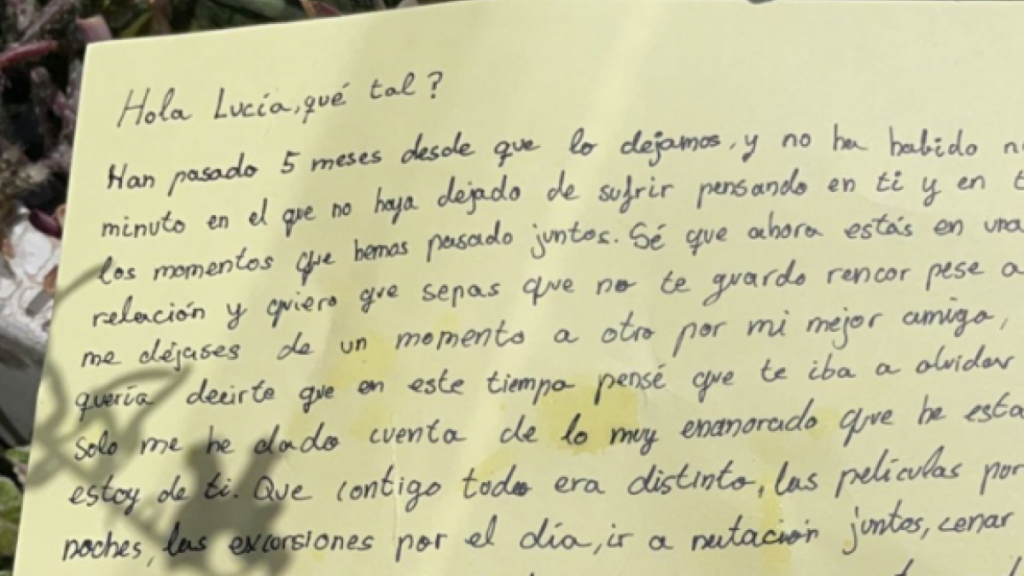 Hola Lucía, qué tal?
Han pasado 5 meses desde que lo dejamos, y no ha habido
minuto en el que no haya dejado de sufrir pensando en ti y en
los momentos que hemos pasado juntos. Sé que ahora estás en una
relación y quiero que sepas que no te guardo rencor pese a
me dejases de un momento a otro por mi mejor amigo,
quería decirte que en este tiempo pensé que te iba a olvidar
solo me he dado cuenta de lo muy enamorado que he
estoy de ti. Que contigo todo era distinto, las películas por
noches, las excursiones por el día, ir a natación juntos, cenar